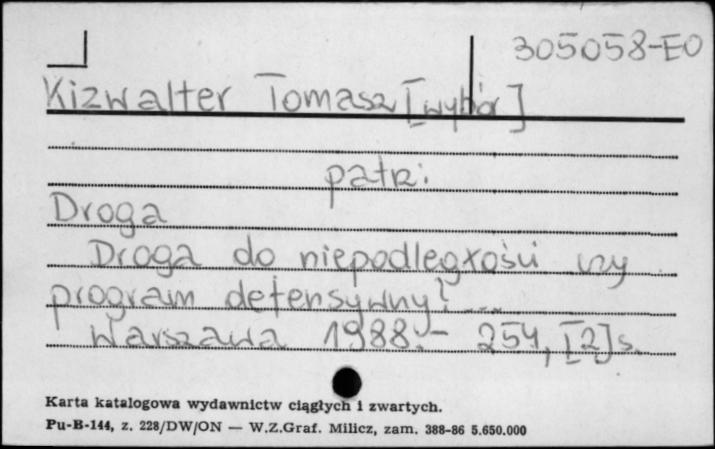 305058-EO
Kizwalter Tomasz [wybór]
patrz:
Droga
Droga do niepodległości czy
program defensywny? ...
Warszawa 1988.- 254, [2] s.
Karta katalogowa wydawnictw ciągłych i zwartych.
Pu-B-144, z. 228/DW/ON — W.Z.Graf. Milicz, zam. 388-86 5.650.000